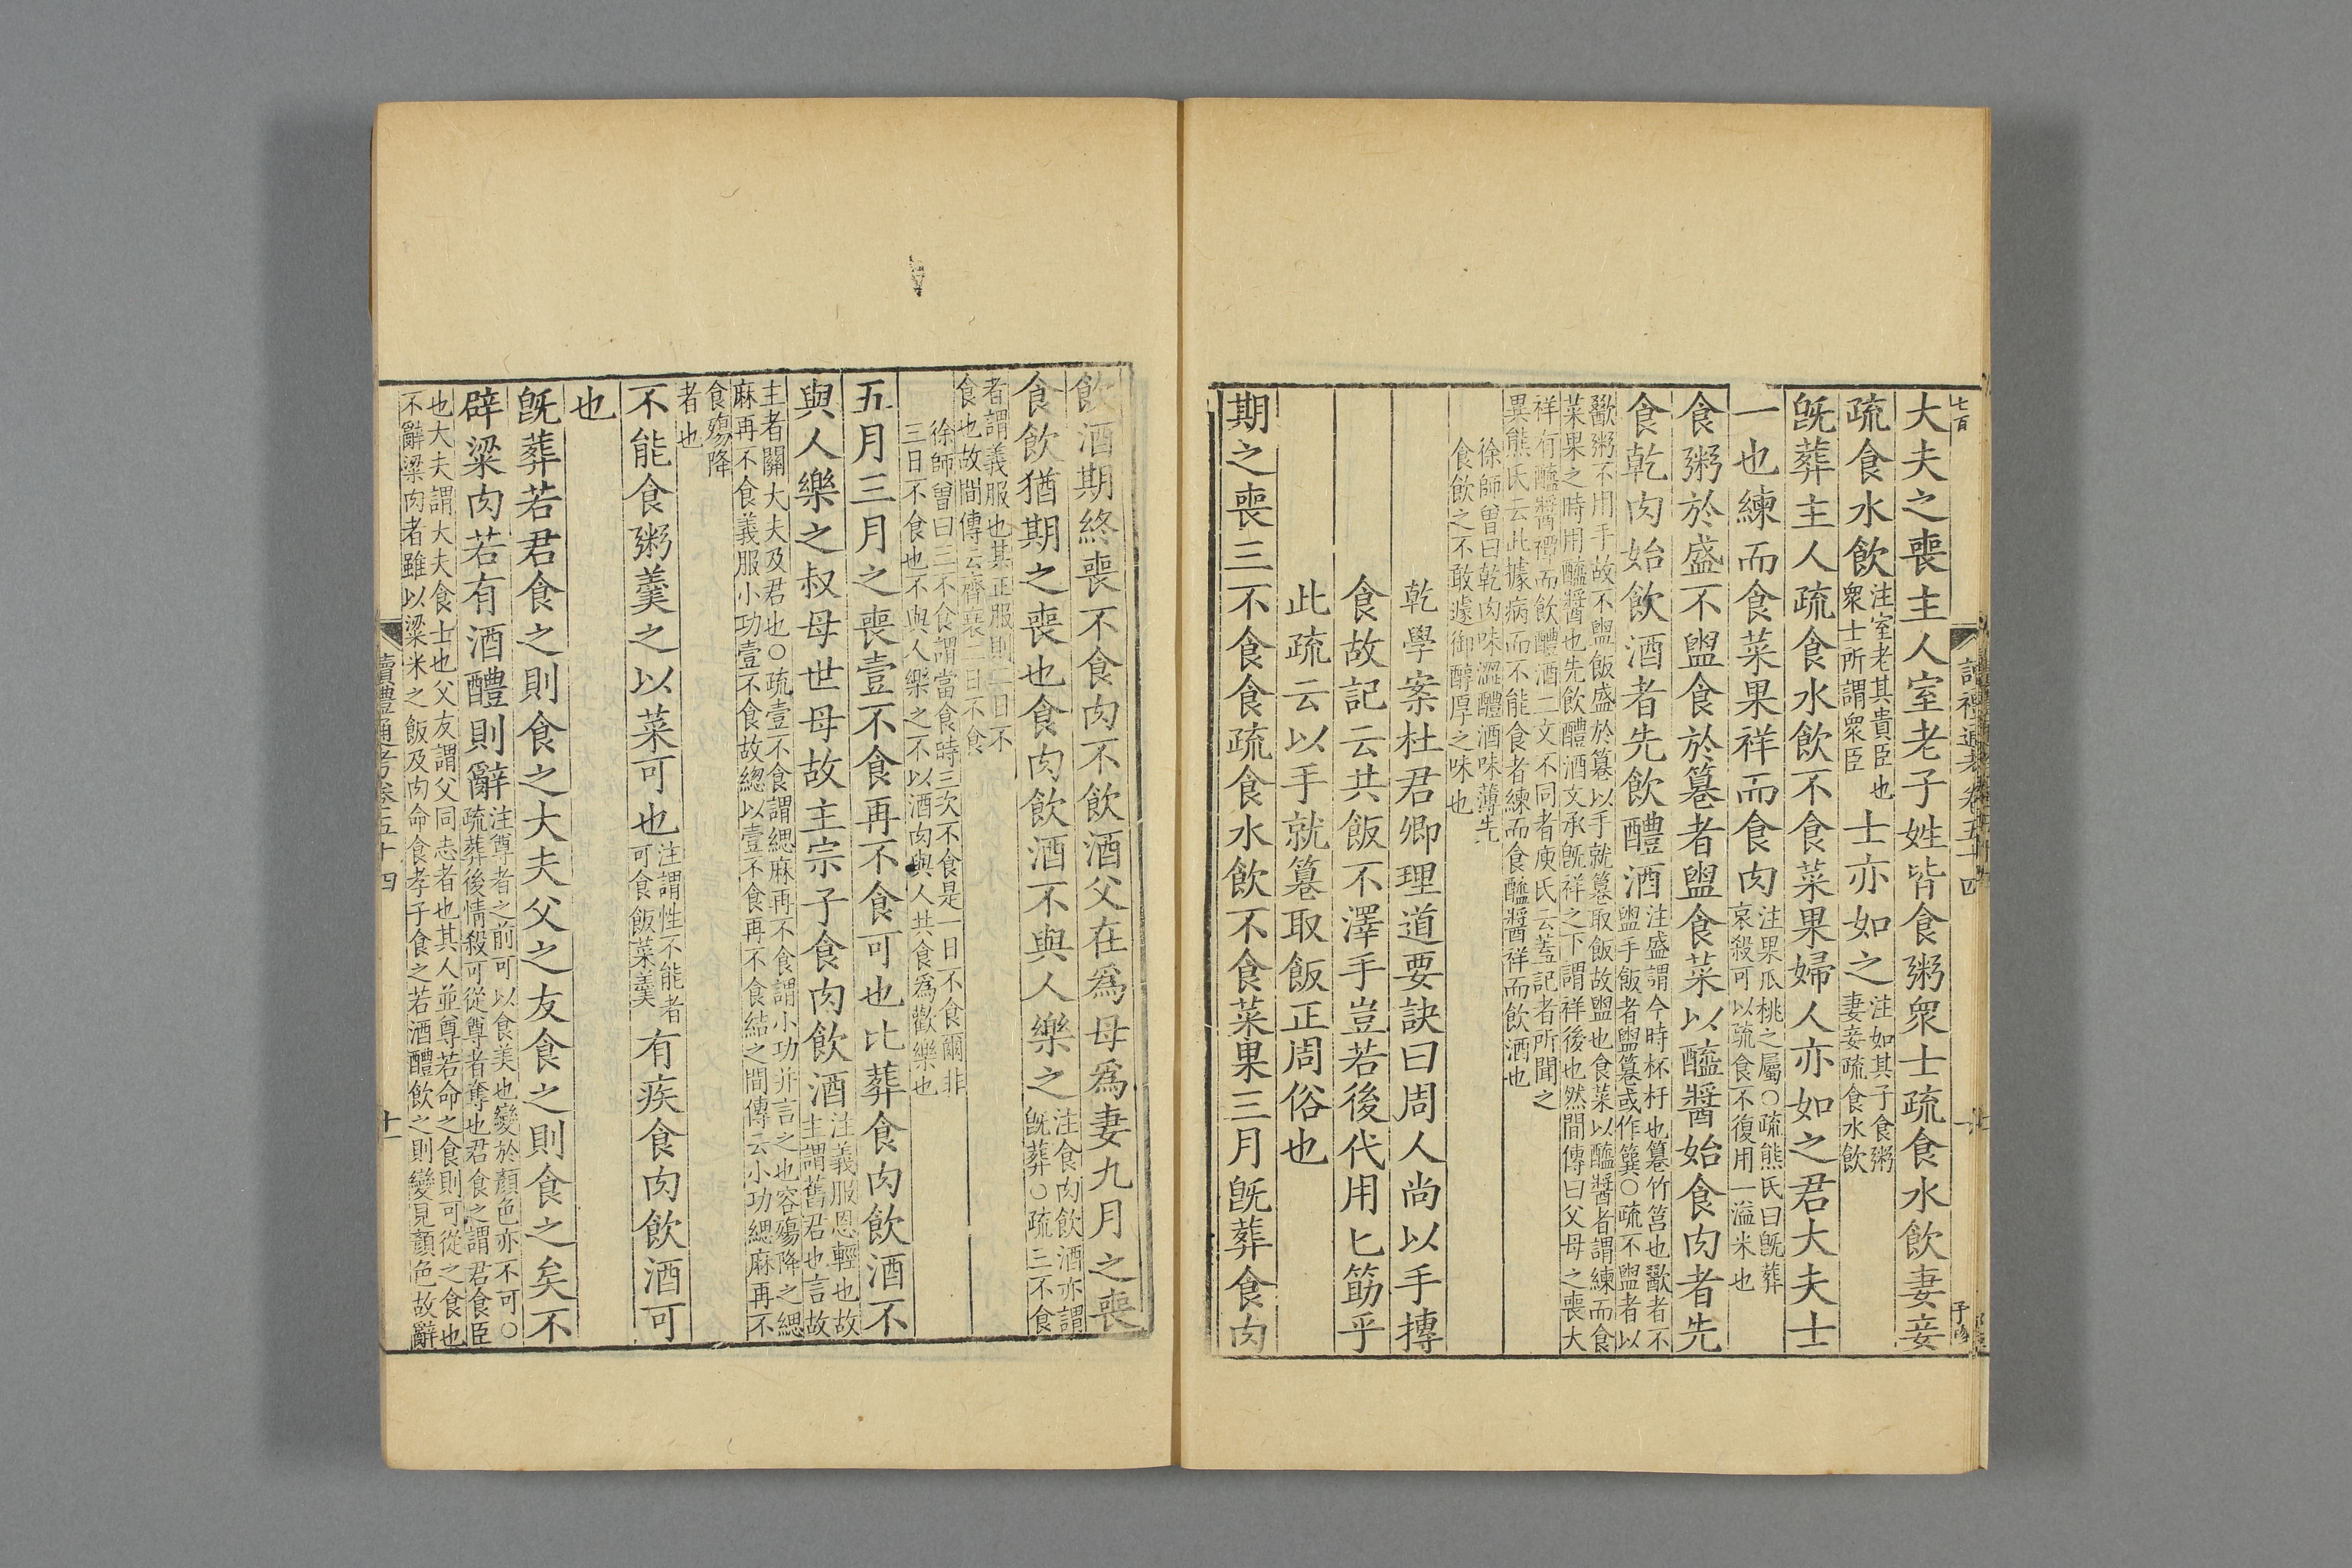 大夫之喪主人室老子姓皆食粥衆士疏食水飲妻妾
疏食水飲注室老其貴臣也衆士所謂衆臣士亦如之注如其子食粥妻妾疏食水飲
旣葬主人疏食水飲不食菜果婦人亦如之君大夫士
一也練而食菜果祥而食肉注果瓜桃之屬○疏熊氏曰旣葬哀殺可以疏食不復用一溢米也
食粥於盛不盥食於篹者盥食菜以醯醬始食肉者先
食乾肉始飲酒者先飲醴酒注盛謂今時杯杅也篹竹筥也歠者不盥手飯者盥篹或作簨○疏不盥者以
歠粥不用手故不盥飯盛於篹以手就篹取飯故盥也食菜以醯醬者謂練而食菜果之時用醯醬也先飲醴酒文承旣祥之下謂祥後也然間傳曰父母之喪大
祥有醯醬禫而飲醴酒二文不同者庾氏云蓋記者所聞之異熊氏云此據病而不能食者練而食醯醬祥而飲酒也
徐師曾曰乾肉味澀醴酒味薄先食飲之不敢遽御醇厚之味也
乾學案杜君卿理道要訣曰周人尚以手摶
食故記云共飯不澤手豈若後代用匕筯乎
此疏云以手就篹取飯正周俗也
期之喪三不食食疏食水飲不食菜果三月旣葬食肉
讀禮通考卷五十四
飲酒期終喪不食肉不飲酒父在爲母爲妻九月之喪
食飲猶期之喪也食肉飲酒不與人樂之注食肉飲酒亦謂旣葬○疏三不食
者謂義服也其正服則二日不食也故間傳云齊衰二日不食
徐師曾曰三不食謂當食時三次不食是一日不食爾非三日不食也不與人樂之不以酒肉與人共食爲歡樂也
五月三月之喪壹不食再不食可也比葬食肉飲酒不
與人樂之叔母世母故主宗子食肉飲酒注義服恩輕也故主謂舊君也言故
主者關大夫及君也○疏壹不食謂緦麻再不食謂小功并言之也容殤降之緦麻再不食義服小功壹不食故緦以壹不食再不食結之間傳云小功緦麻再不
食殤降者也
不能食粥羹之以菜可也注謂性不能者可食飯菜羹有疾食肉飲酒可
也
旣葬若君食之則食之大夫父之友食之則食之矣不
辟粱肉若有酒醴則辭注尊者之前可以食美也變於顏色亦不可○疏葬後情殺可從尊者奪也君食之謂君食臣
也大夫謂大夫食士也父友謂父同志者也其人並尊若命之食則可從之食也不辭粱肉者雖以粱米之飯及肉命食孝子食之若酒醴飲之則變見顏色故辭
讀禮通考卷五十四 十一